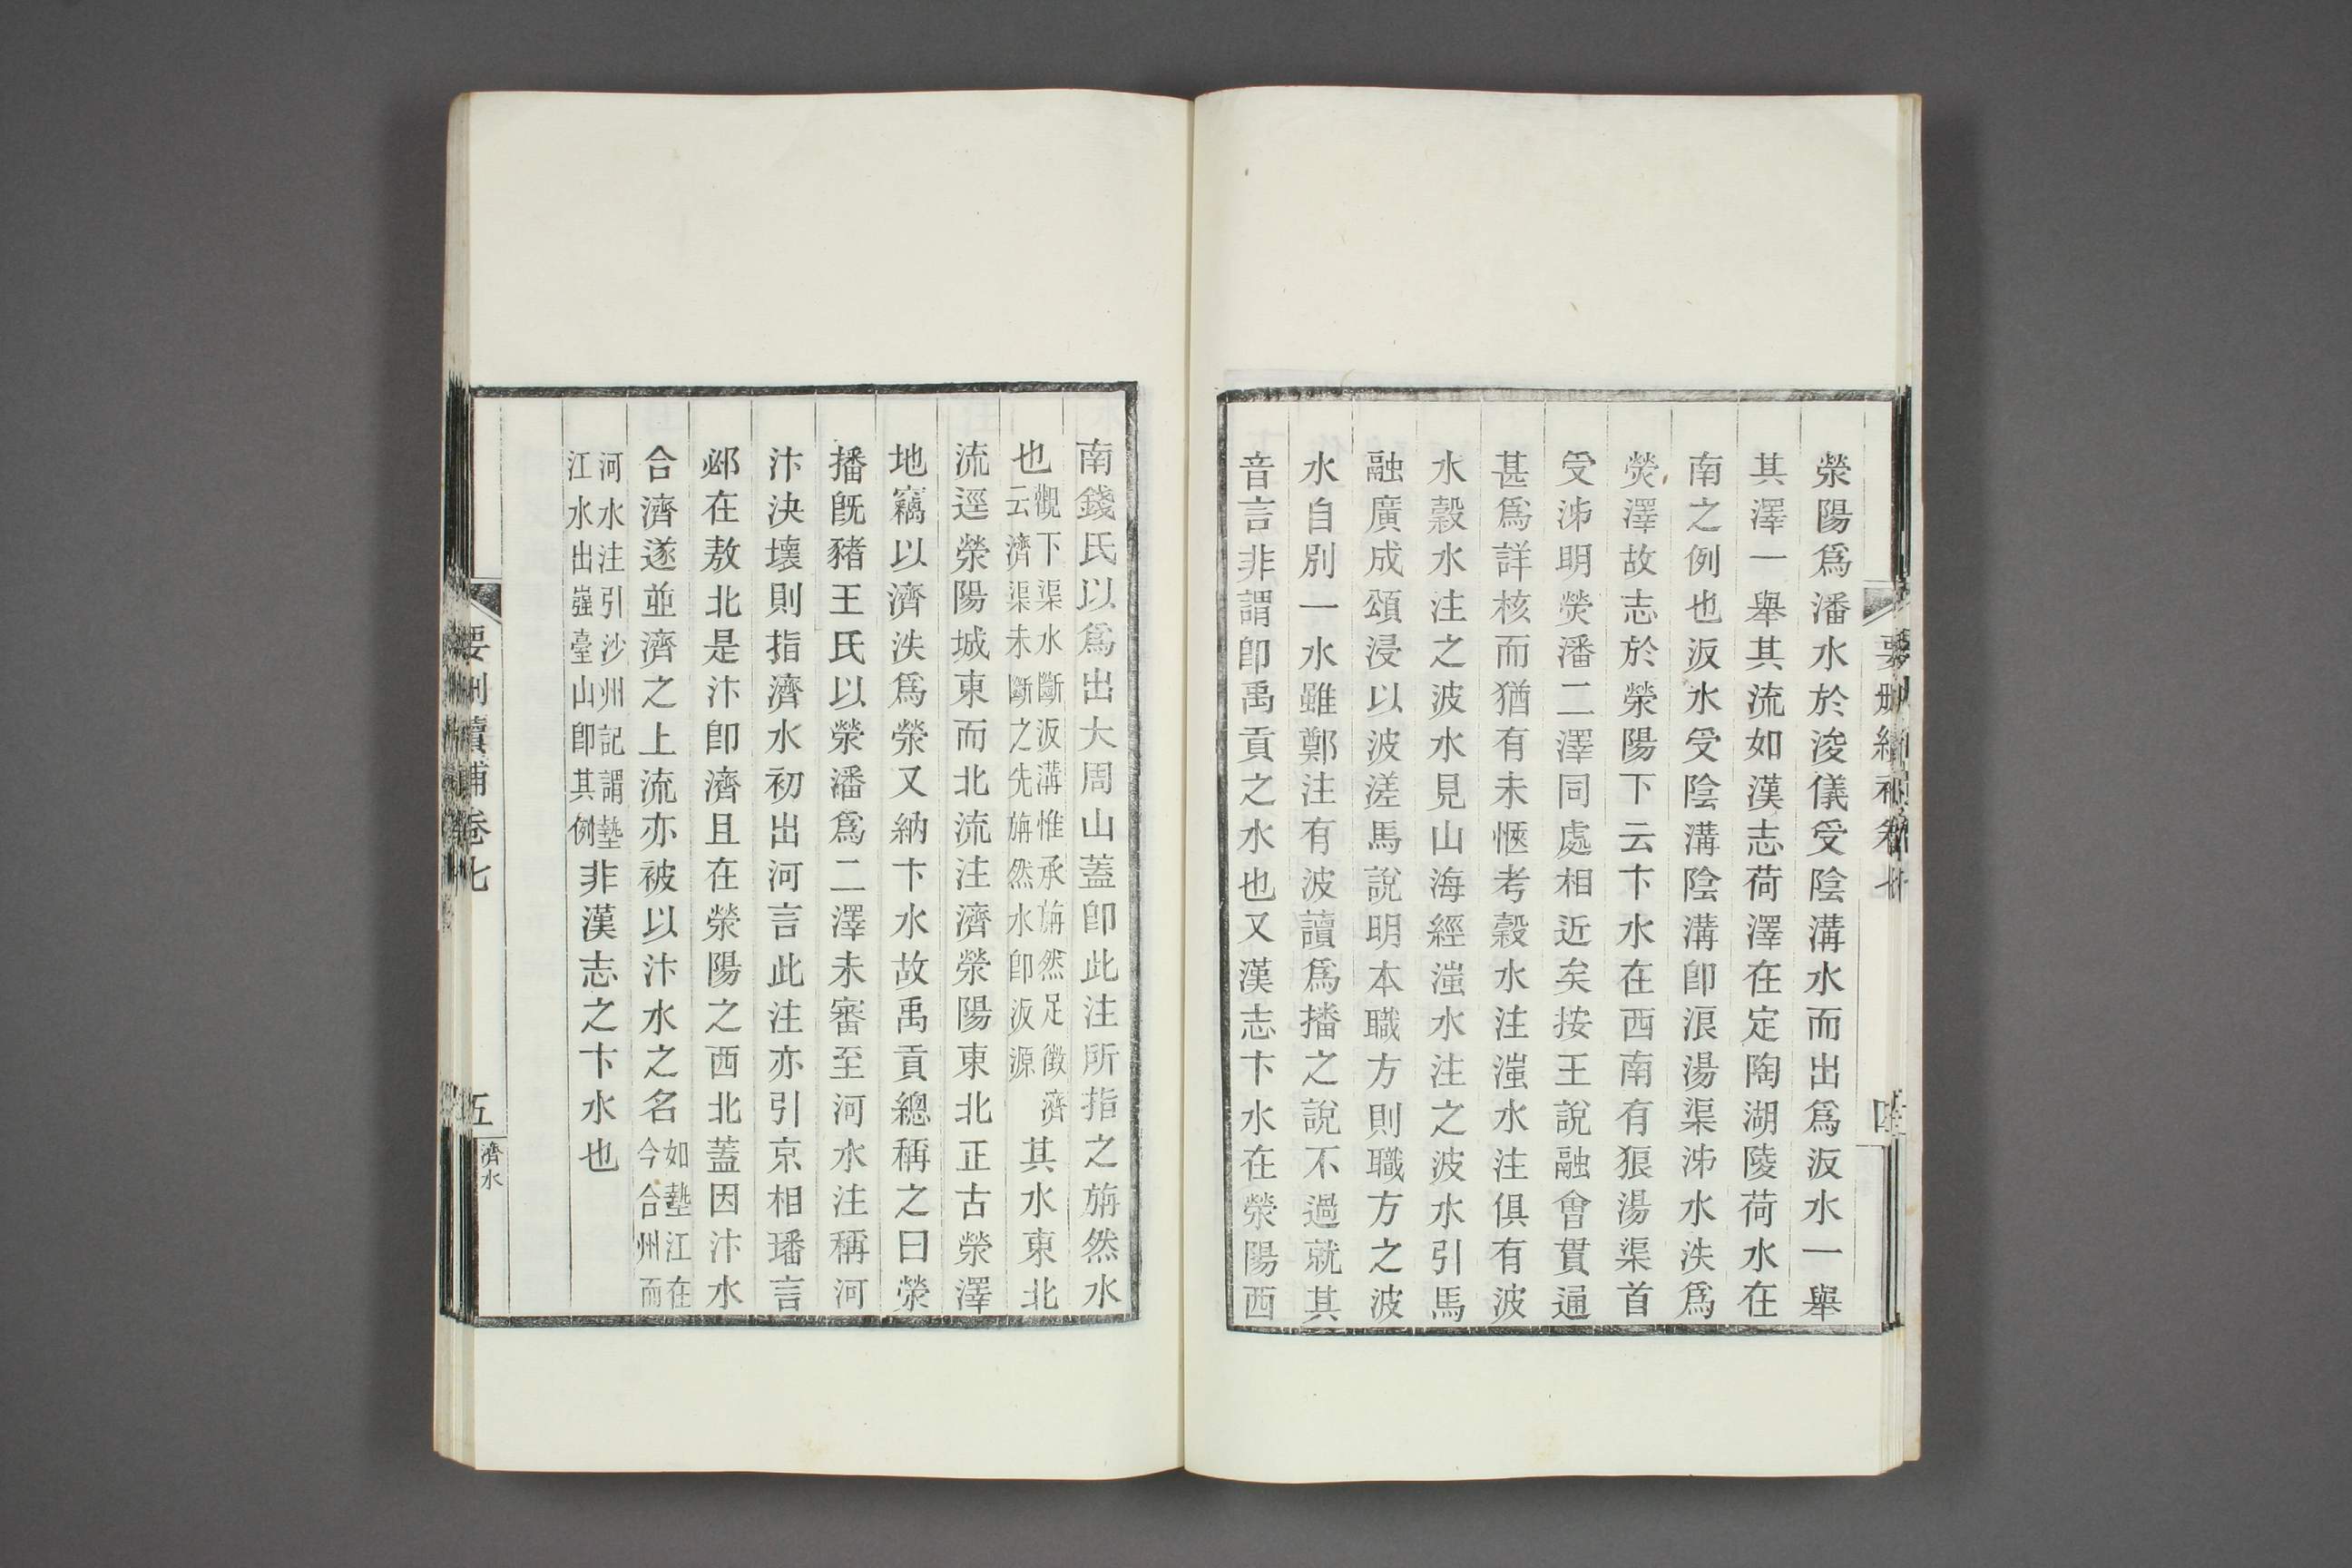 滎陽爲潘水於浚儀受陰溝水而出爲汳水一舉
其澤一舉其流如漢志荷澤在定陶湖陵荷水在
南之例也汳水受陰溝陰溝卽浪湯渠泲水泆爲
熒澤故志於滎陽下云卞水在西南有狼湯渠首
受泲明熒潘二澤同處相近矣按王說融會貫通
甚爲詳核而猶有未愜考穀水注滍水注俱有波
水穀水注之波水見山海經滍水注之波水引馬
融廣成頌浸以波溠馬說明本職方則職方之波
水自別一水雖鄭注有波讀爲播之說不過就其
音言非謂卽禹貢之水也又漢志卞水在滎陽西
南錢氏以爲出大周山蓋卽此注所指之旃然水
也觀下渠水斷汳溝惟承旃然足徵濟
云濟渠未斷之先旃然水卽汳源其水東北
流逕滎陽城東而北流注濟滎陽東北正古滎澤
地竊以濟泆爲滎又納卞水故禹貢總稱之曰滎
播旣豬王氏以滎潘爲二澤未審至河水注稱河
汴決壞則指濟水初出河言此注亦引京相璠言
邲在敖北是汴卽濟且在滎陽之西北蓋因汴水
合濟遂並濟之上流亦被以汴水之名如墊江在
今合州而
河水注引沙州記謂墊
江水出嵹臺山卽其例非漢志之卞水也
要刪續補卷七
五
濟水